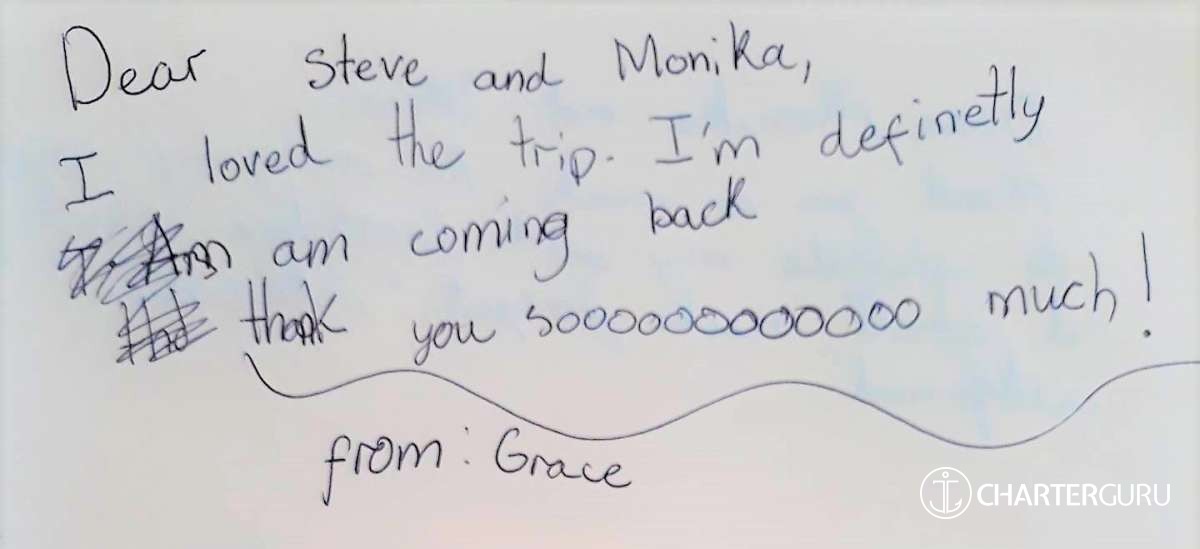 Dear Steve and Monika,
I loved the trip. I'm definetly
am coming back
thank you sooooooooooooo much!
from: Grace
CHARTERGURU